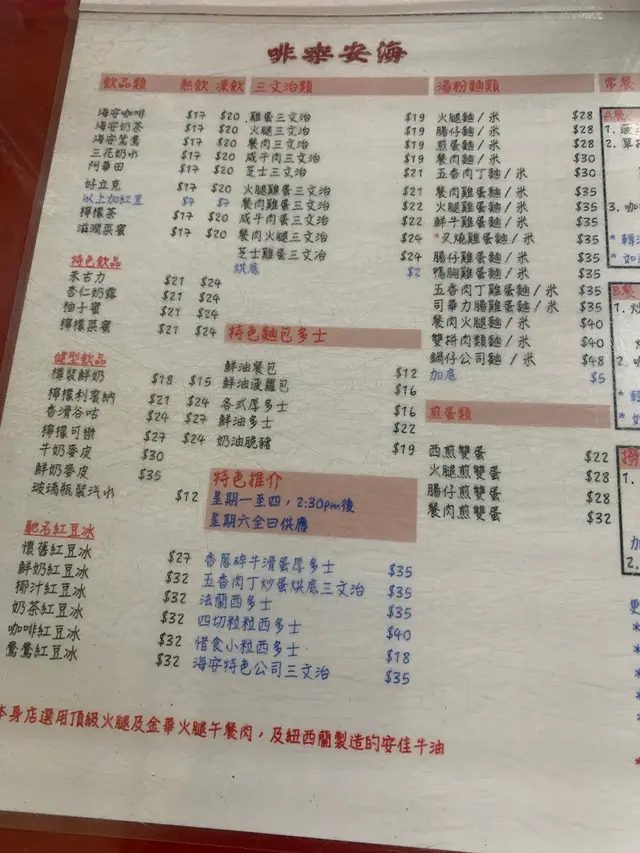 啡咖安海
飲品類 熱飲 凍飲
海安咖啡 $17 $20
海安奶茶 $17 $20
海安鴛鴦 $17 $20
三花奶水 $17 $20
阿華田 $17 $20
好立克 $17 $20
以上加紅豆 $7 $7
檸檬茶 $17 $20
滋潤菜蜜 $17 $20
特色飲品
朱古力 $21 $24
杏仁奶露 $21 $24
柚子蜜 $21 $24
檸檬菜蜜 $21 $24
健型飲品
樽裝鮮奶 $18 $15
檸檬利賓納 $21 $24
香滑谷咕 $24 $27
檸檬可樂 $27 $24
牛奶麥皮 $30
鮮奶麥皮 $35
玻璃瓶裝汽水 $12
馳名紅豆冰
懷舊紅豆冰 $27
鮮奶紅豆冰 $32
椰汁紅豆冰 $32
奶茶紅豆冰 $32
咖啡紅豆冰 $32
鴛鴦紅豆冰 $32
三文治類
雞蛋三文治 $19
火腿三文治 $19
餐肉三文治 $19
咸牛肉三文治 $19
芝士三文治 $21
火腿雞蛋三文治 $21
餐肉雞蛋三文治 $22
咸牛肉蛋三文治 $22
餐肉火腿三文治 $24
芝士雞蛋三文治 $24
烘底 $2
特色麵包多士
鮮油餐包 $12
鮮油菠蘿包 $16
各式厚多士 $16
鮮油多士 $22
奶油脆豬 $19
特色推介
星期一至四，2:30pm後
星期六全日供應
香蔥碎牛滑蛋厚多士 $35
五香肉丁炒蛋烘底三文治 $35
法蘭西多士 $35
四切粒粒西多士 $40
惜食小粒西多士 $18
海安特色公司三文治 $35
湯粉麵類
火腿麵 / 米 $28
腸仔麵 / 米 $28
煎蛋麵 / 米 $28
餐肉麵 / 米 $30
五香肉丁麵 / 米 $30
餐肉雞蛋麵 / 米 $35
火腿雞蛋麵 / 米 $35
鮮牛雞蛋麵 / 米 $35
*叉燒雞蛋麵 / 米 $35
腸仔雞蛋麵 / 米 $35
鴨胸雞蛋麵 / 米 $35
五香肉丁雞蛋麵 / 米 $35
司華力腸雞蛋麵 / 米 $35
餐肉火腿麵 / 米 $40
雙拼肉類麵 / 米 $40
鍋仔公司麵 / 米 $48
加底 $5
煎蛋類
西煎雙蛋 $22
火腿煎雙蛋 $28
腸仔煎雙蛋 $28
餐肉煎雙蛋 $32
常餐
A餐
1.
2.
3. 咖
*
* 如
B餐
1. 炒
2.
*
*
1.
加
2.
更
本身店選用頂級火腿及金華火腿午餐肉，及紐西蘭製造的安佳牛油